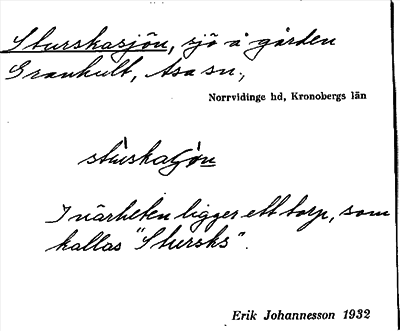 Sturskasjön, sjö å gården
Grankult, Asa sn.,
Norrvidinge hd, Kronobergs län
I närheten ligger ett torp, som
kallas "Stursks".
Erik Johannesson 1932